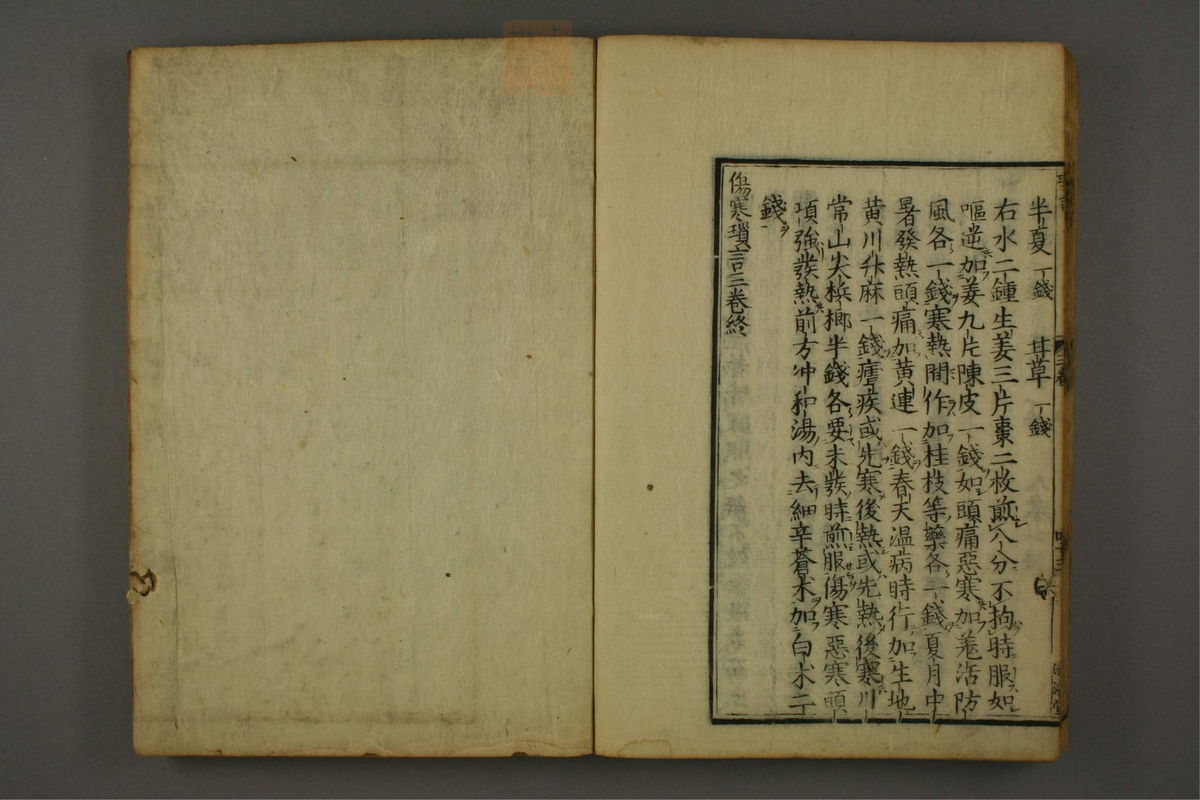 半夏 一錢 甘草 一錢
右水二鍾生姜三片棗二枚煎八分不拘時服如
嘔逆加姜九片陳皮一錢如頭痛惡寒加羌活防
風各一錢寒熱間作加桂枝等藥各一錢夏月中
暑發熱頭痛加黃連一錢春天温病時行加生地
黃川升麻一錢瘧疾或先寒後熱或先熱後寒川
常山尖梹榔半錢各要未發時煎服傷寒惡寒頭
項強發熱前方冲和湯内去細辛蒼朮加白朮二
錢
傷寒瑣言三卷終